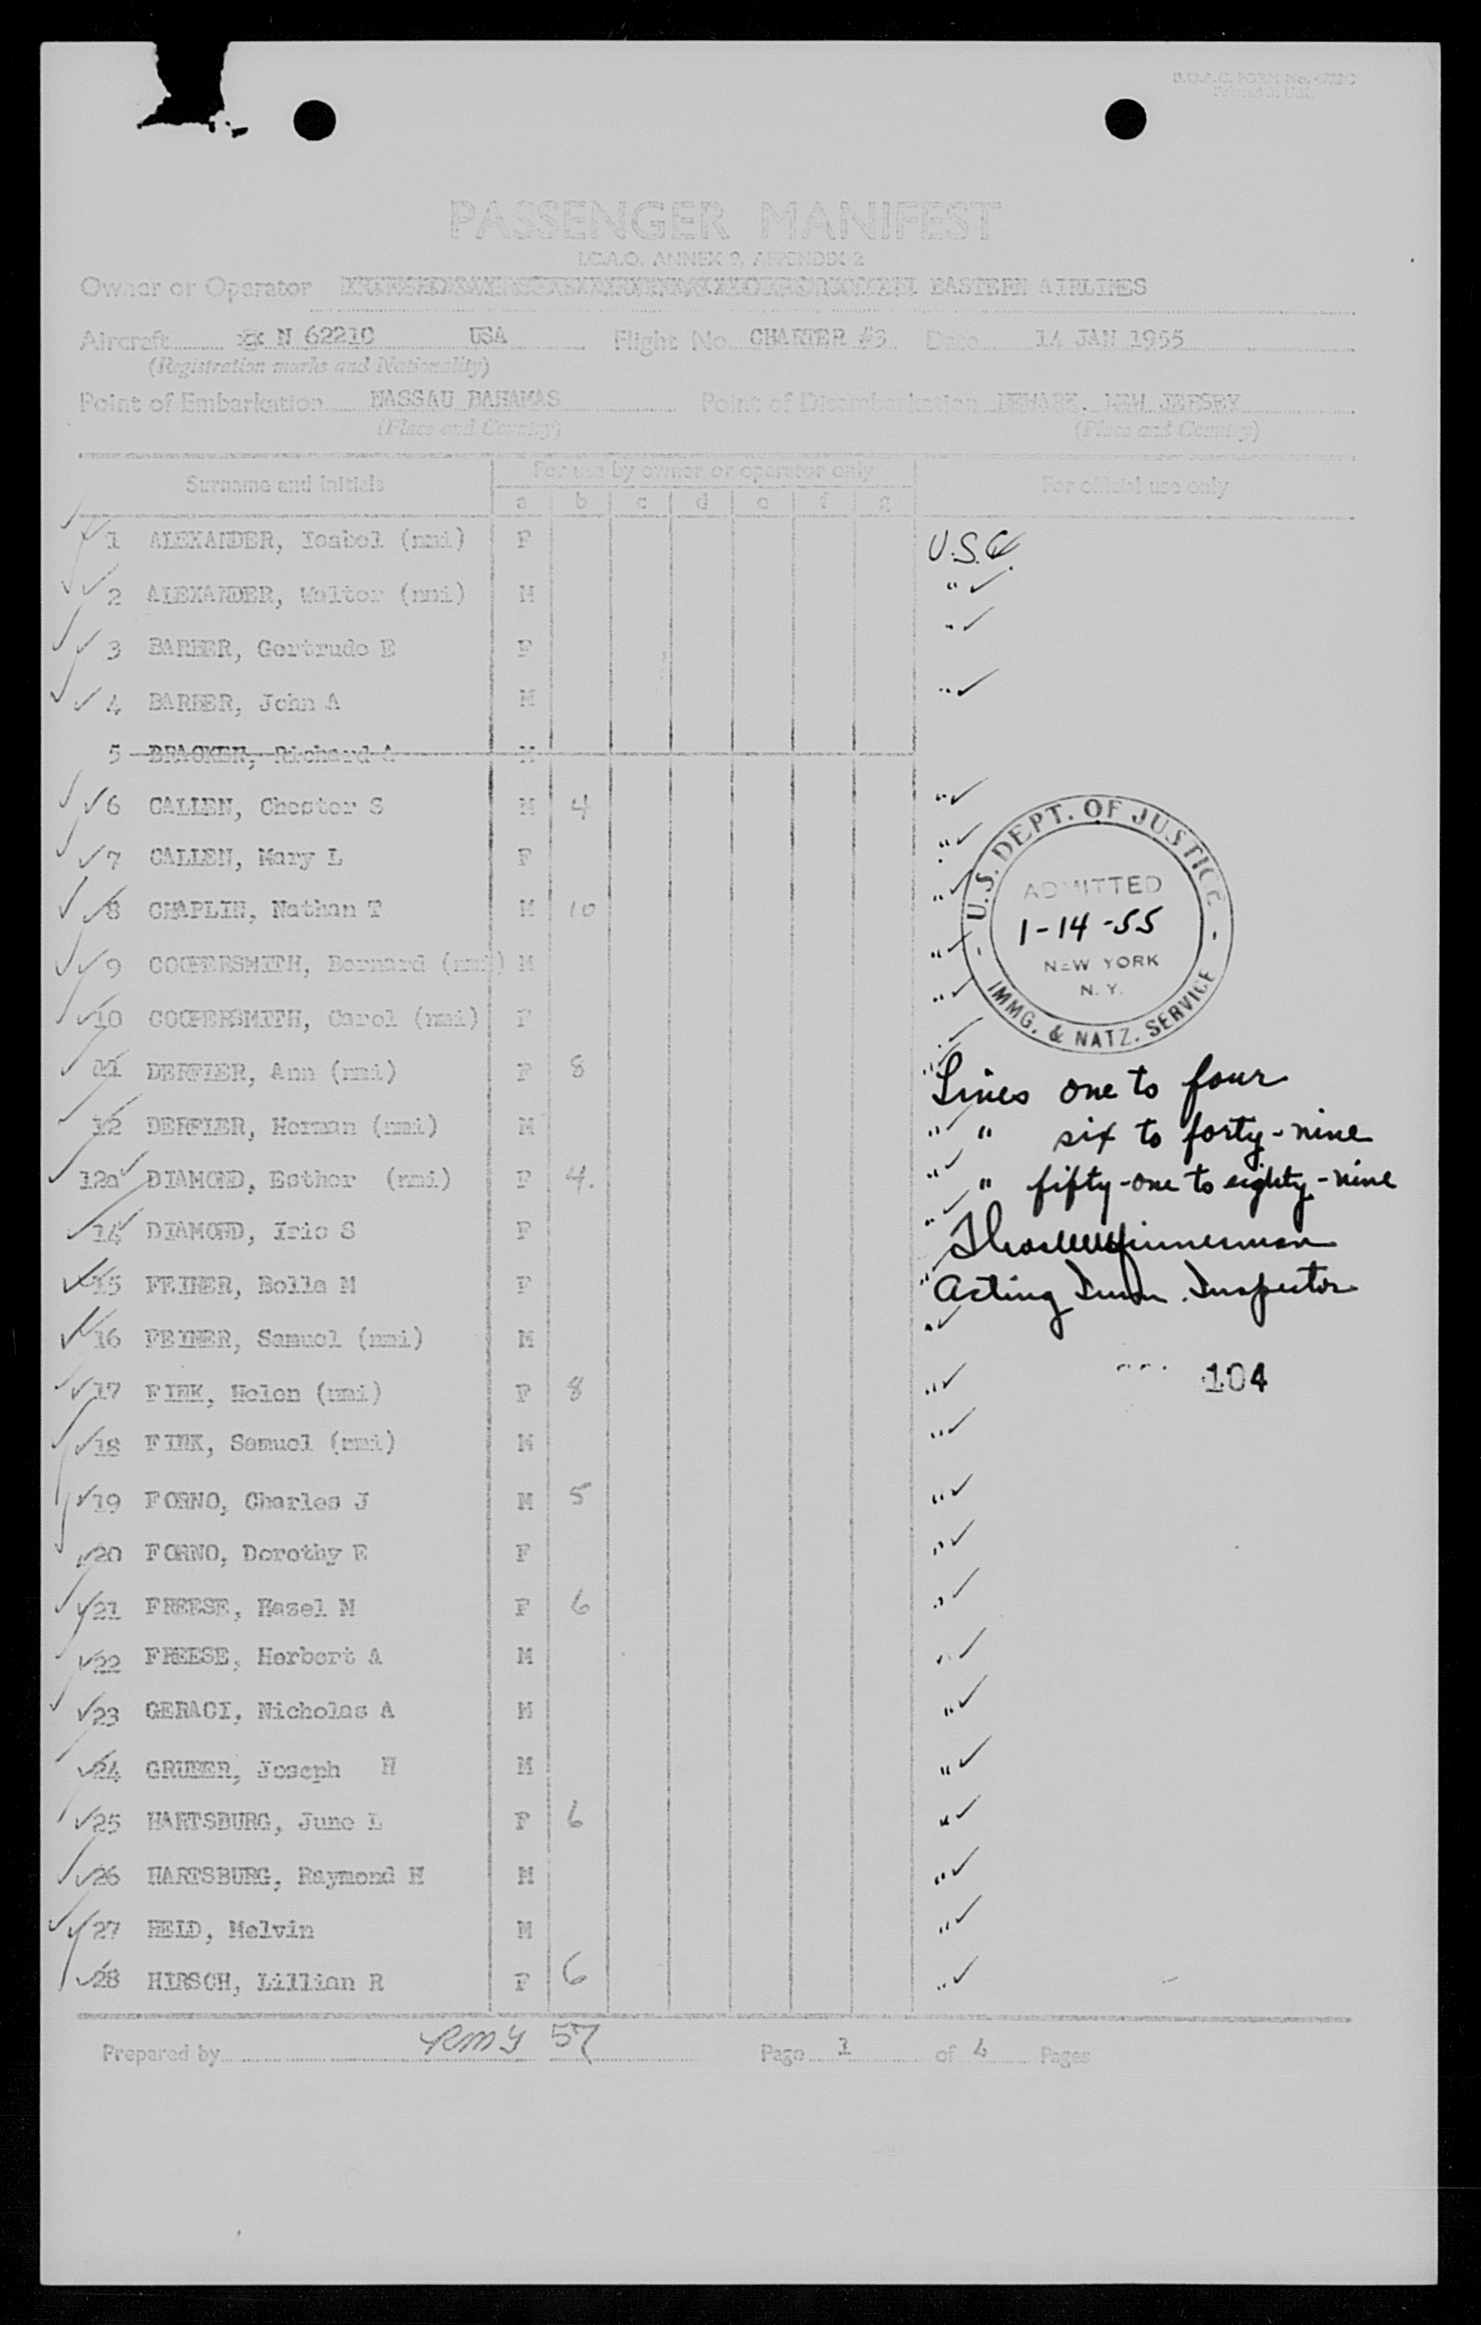 B.O.A.C. FORM No.
PASSENGER MANIFEST
I.C.A.O. ANNEX 9, APPENDIX 2
Owner or Operator EASTERN AIRLINES
Aircraft N 6221C USA Flight No. CHARTER #3 Date 14 JAN 1955
(Registration marks and Nationality)
Point of Embarkation NASSAU BAHAMAS Point of Disembarkation NEWARK, NEW JERSEY
(Place and Country) (Place and Country)
Surname and initials For use by owner or operator only For official use only
a b c d e f g
1 ALEXANDER, Isabel (nmi) F U.S.C.
2 ALEXANDER, Walter (nmi) M " ✓
3 BARBER, Gertrude E F " ✓
4 BARBER, John A M " ✓
5 BRACKEN, Richard A M
6 CALLEN, Chester S M 4 " ✓
7 CALLEN, Mary L F " ✓
8 CHAPLIN, Nathan T M 10 " ✓
9 COOPERSMITH, Bernard (nmi) M " ✓
10 COOPERSMITH, Carol (nmi) F " ✓
U.S. DEPT. OF JUSTICE
ADMITTED
1-14-55
NEW YORK
N.Y.
IMMG. & NATZ. SERVICE
11 DERFLER, Ann (nmi) F 8 " ✓
Lines one to four
12 DERFLER, Herman (nmi) M " ✓
" six to forty-nine
12a DIAMOND, Esther (nmi) F 4. " ✓
" fifty-one to eighty-nine
14 DIAMOND, Iris S F " ✓
15 FEINER, Bella M F " ✓
Acting Immn. Inspector
16 FEINER, Samuel (nmi) M " ✓
17 FINK, Helen (nmi) F 8 " ✓
104
18 FINK, Samuel (nmi) M " ✓
19 FORNO, Charles J M 5 " ✓
20 FORNO, Dorothy E F " ✓
21 FREESE, Hazel M F 6 " ✓
22 FREESE, Herbert A M " ✓
23 GERACI, Nicholas A M " ✓
24 GRUBER, Joseph H M " ✓
25 HARTSBURG, June L F 6 " ✓
26 HARTSBURG, Raymond H M " ✓
27 HELD, Melvin M " ✓
28 HIRSCH, Lillian R F 6 " ✓
Prepared by RMY 57 Page 1 of 4 Pages